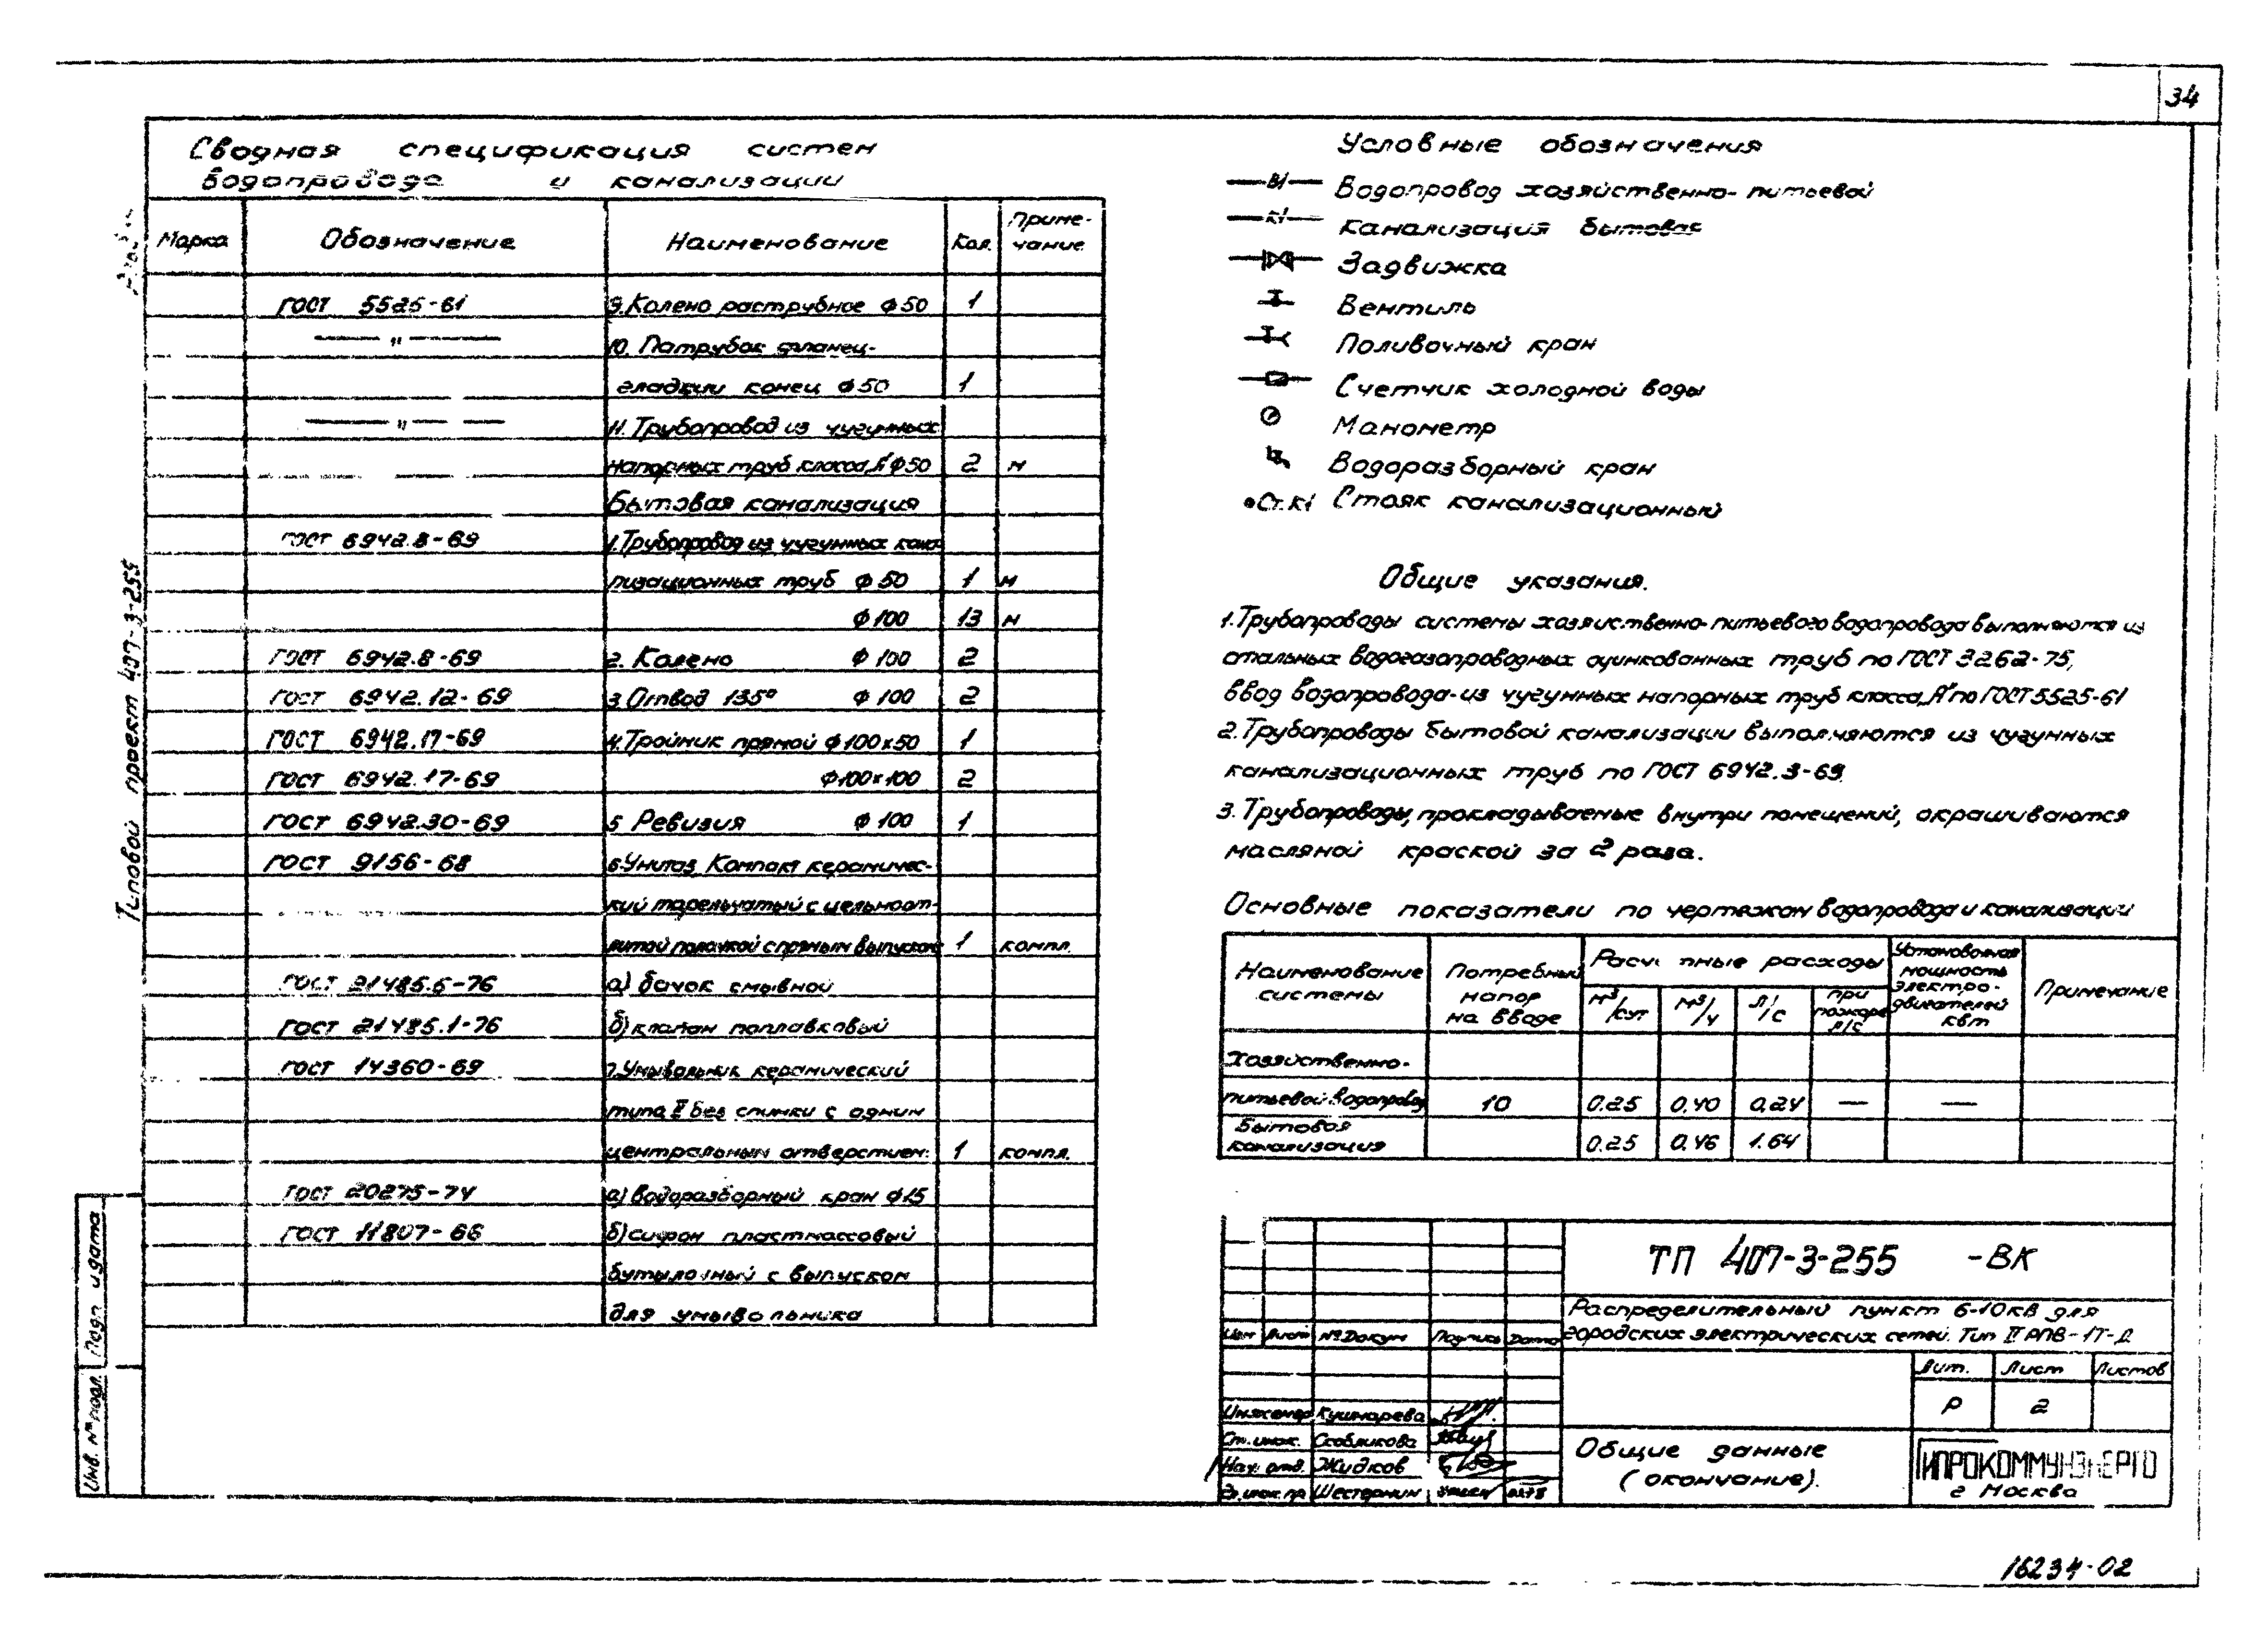 34
Сводная спецификация систем
водопровода и канализации
Марка Обозначение Наименование Кол. Приме-
чание
ГОСТ 5525-61 9. Колено раструбное ф 50 1
—— " —— 10. Патрубок фланец-
гладкий конец ф 50 1
—— " —— 11. Трубопровод из чугунных
напорных труб класса „А" ф 50 2 м
Бытовая канализация
ГОСТ 6942.8-69 1. Трубопровод из чугунных кана-
лизационных труб ф 50 1 м
ф 100 13 м
ГОСТ 6942.8-69 2. Колено ф 100 2
ГОСТ 6942.12-69 3 Отвод 135° ф 100 2
ГОСТ 6942.17-69 4. Тройник прямой ф 100х50 1
ГОСТ 6942.17-69 ф100х100 2
ГОСТ 6942.30-69 5 Ревизия ф 100 1
ГОСТ 9156-68 6 Унитаз „Компакт керамичес-
кий тарельчатый с цельноот-
литой полочкой с прямым выпуском 1 компл.
ГОСТ 21485.6-76 а) бачок смывной
ГОСТ 21485.1-76 б) клапан поплавковый
ГОСТ 14360-69 7. Умывальник керамический
типа II без спинки с одним
центральным отверстием: 1 компл.
ГОСТ 20275-74 а) водоразборный кран ф 15
ГОСТ 11807-66 б) сифон пластмассовый
бутылочный с выпуском
для умывальника
Условные обозначения
—В1— Водопровод хозяйственно-питьевой
—К1— Канализация бытовая
Задвижка
Вентиль
Поливочный кран
Счетчик холодной воды
Манометр
Водоразборный кран
Ст.К1 Стояк канализационный
Общие указания.
1. Трубопроводы системы хозяйственно-питьевого водопровода выполняются из
стальных водогазопроводных оцинкованных труб по ГОСТ 3262-75,
ввод водопровода-из чугунных напорных труб класса „А" по ГОСТ 5525-61
2. Трубопроводы бытовой канализации выполняются из чугунных
канализационных труб по ГОСТ 6942.3-69.
3. Трубопроводы, прокладываемые внутри помещений, окрашиваются
масляной краской за 2 раза.
Основные показатели по чертежам водопровода и канализации
Наименование системы Потребный напор на вводе Расчетные расходы Установочная мощность электро-двигателей квт Примечание
м³/сут м³/ч л/с при пожаре л/с
Хозяйственно-
питьевой водопровод 10 0.25 0.40 0.24 — —
Бытовая
канализация 0.25 0.46 1.64
ТП 407-3-255 -ВК
Распределительный пункт 6-10кВ для
городских электрических сетей. Тип II РПВ-1Т-Д
Изм Лист №Докум Подпись Дата
Лит. Лист Листов
Р 2
Инженер Кушнарева
Ст. инж. Скобликова
Нач. отд. Жидков
Гл. инж. пр Шестернин
Общие данные
(окончание).
ГИПРОКОММУНЭНЕРГО
г Москва
16234-02
Типовой проект 407-3-255
Подп и дата
Инв. № подл.